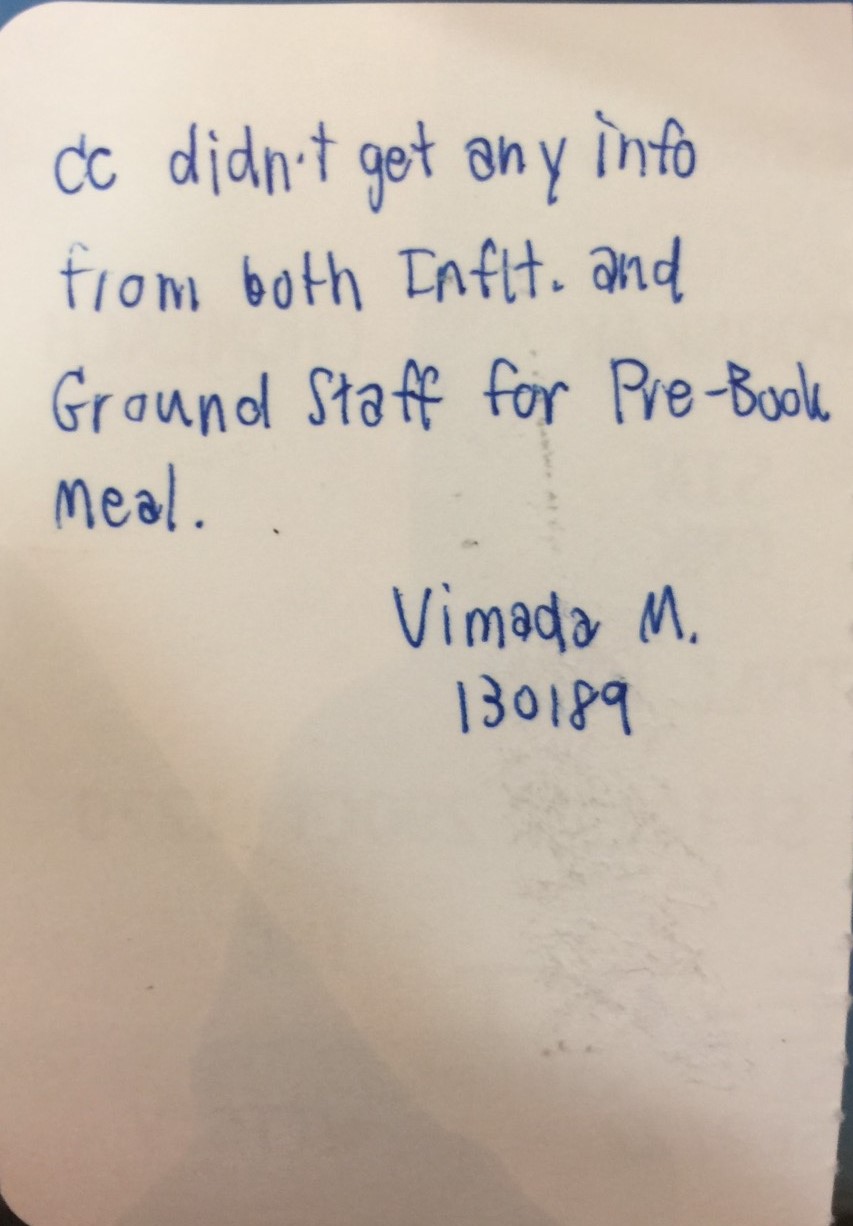 CC didn't get any info
from both Inflt. and
Ground Staff for Pre-Book
Meal.
Vimada M.
130189